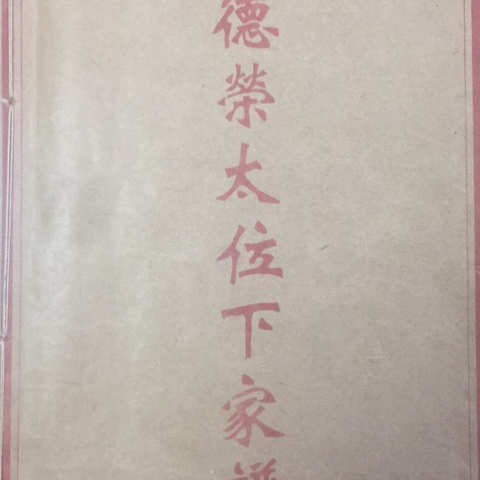 德榮太位下家譜